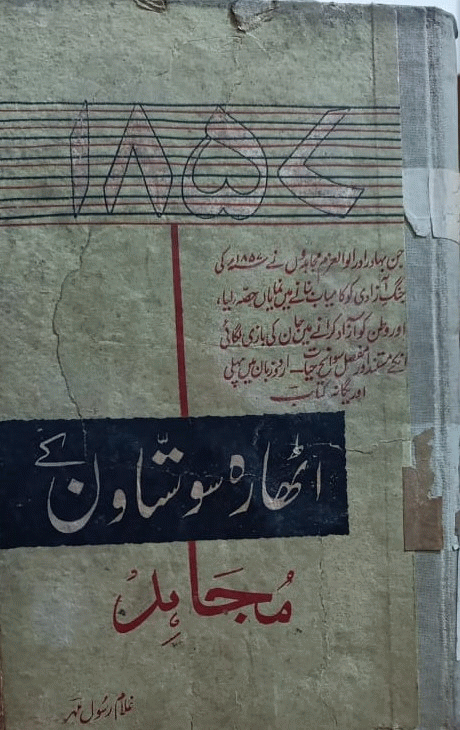 ۱۸۵۷
جن بہادر اور اولوالعزم مجاہدوں نے ۱۸۵۷ء کی
جنگ آزادی کو کامیاب بنانے میں نمایاں حصہ لیا،
اور وطن کو آزاد کرانے میں جان کی بازی لگائی
انکے مستند اور مفصل سوانح حیات ــ اردو زبان میں پہلی
اور یگانہ کتاب
اٹھارہ سو ستاون کے
مُجَاہِد
غلام رسول مہر